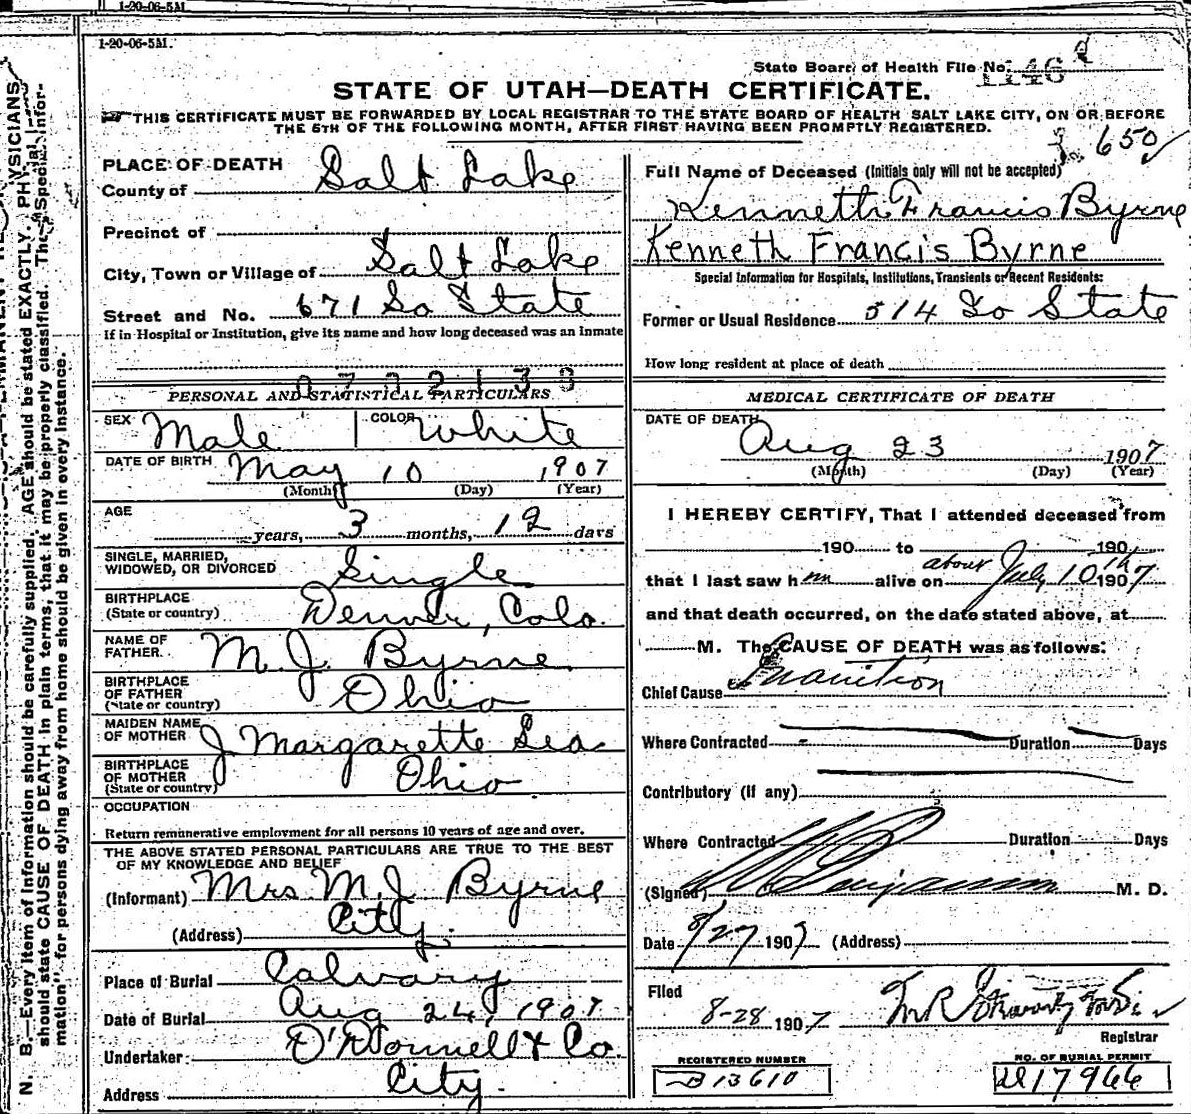 1-20-06-5M.
1-20-06-5M.
State Board of Health File No. 1146
STATE OF UTAH—DEATH CERTIFICATE.
THIS CERTIFICATE MUST BE FORWARDED BY LOCAL REGISTRAR TO THE STATE BOARD OF HEALTH SALT LAKE CITY, ON OR BEFORE
THE 5TH OF THE FOLLOWING MONTH, AFTER FIRST HAVING BEEN PROMPTLY REGISTERED.
650
PLACE OF DEATH
County of Salt Lake
Precinct of
City, Town or Village of Salt Lake
Street and No. 671 So State
If in Hospital or Institution, give its name and how long deceased was an inmate
PERSONAL AND STATISTICAL PARTICULARS
SEX Male COLOR White
DATE OF BIRTH May 10 1907
(Month) (Day) (Year)
AGE
years, 3 months, 12 days
SINGLE, MARRIED,
WIDOWED, OR DIVORCED Single
BIRTHPLACE
(State or country) Denver, Colo.
NAME OF
FATHER. M. J. Byrne
BIRTHPLACE
OF FATHER
(State or country) Ohio
MAIDEN NAME
OF MOTHER J Margarette Lea
BIRTHPLACE
OF MOTHER
(State or country) Ohio
OCCUPATION
Return remunerative employment for all persons 10 years of age and over.
THE ABOVE STATED PERSONAL PARTICULARS ARE TRUE TO THE BEST
OF MY KNOWLEDGE AND BELIEF
(Informant) Mrs. M. J. Byrne
(Address) City.
Place of Burial Calvary
Date of Burial Aug 24, 1907
Undertaker: O'Donnell & Co.
Address City.
Full Name of Deceased (Initials only will not be accepted)
Kenneth Francis Byrne
Kenneth Francis Byrne
Special Information for Hospitals, Institutions, Transients or Recent Residents:
Former or Usual Residence 514 So State
How long resident at place of death
MEDICAL CERTIFICATE OF DEATH
DATE OF DEATH
Aug 23 1907
(Month) (Day) (Year)
I HEREBY CERTIFY, That I attended deceased from
190 to 190
that I last saw him alive on about July 10th 1907
and that death occurred, on the date stated above, at
M. The CAUSE OF DEATH was as follows:
Chief Cause Inanition
Where Contracted Duration Days
Contributory (if any)
Where Contracted Duration Days
(Signed) Benjamin M. D.
Date 8/27 1907 (Address)
Filed
8-28 1907
Registrar
REGISTERED NUMBER
B 13610
NO. OF BURIAL PERMIT
17966
N. B.—Every item of information should be carefully supplied. AGE should be stated EXACTLY. PHYSICIANS
should state CAUSE OF DEATH in plain terms, that it may be properly classified. The "Special Infor-
mation" for persons dying away from home should be given in every instance.